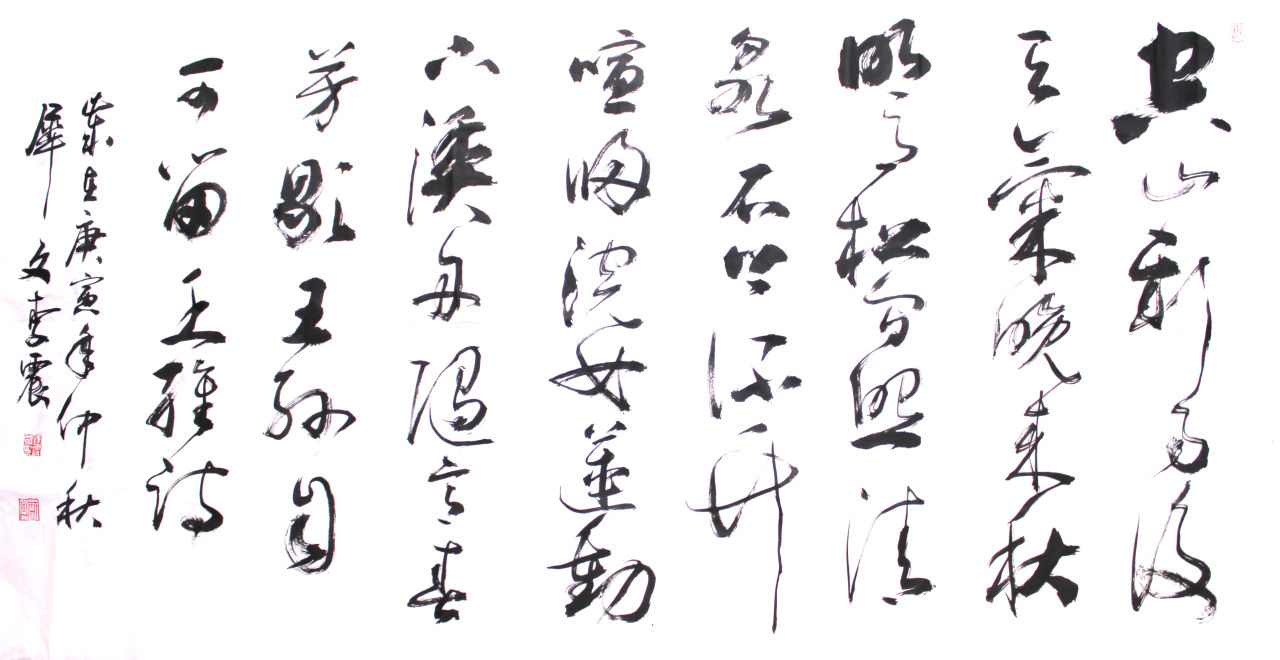 空山新雨後
天氣晚来秋
明月松間照清
泉石上流竹
喧歸浣女蓮動
下漁舟隨意春
芳歇王孫自
可留王維詩
歲在庚寅年仲秋
犀文李震